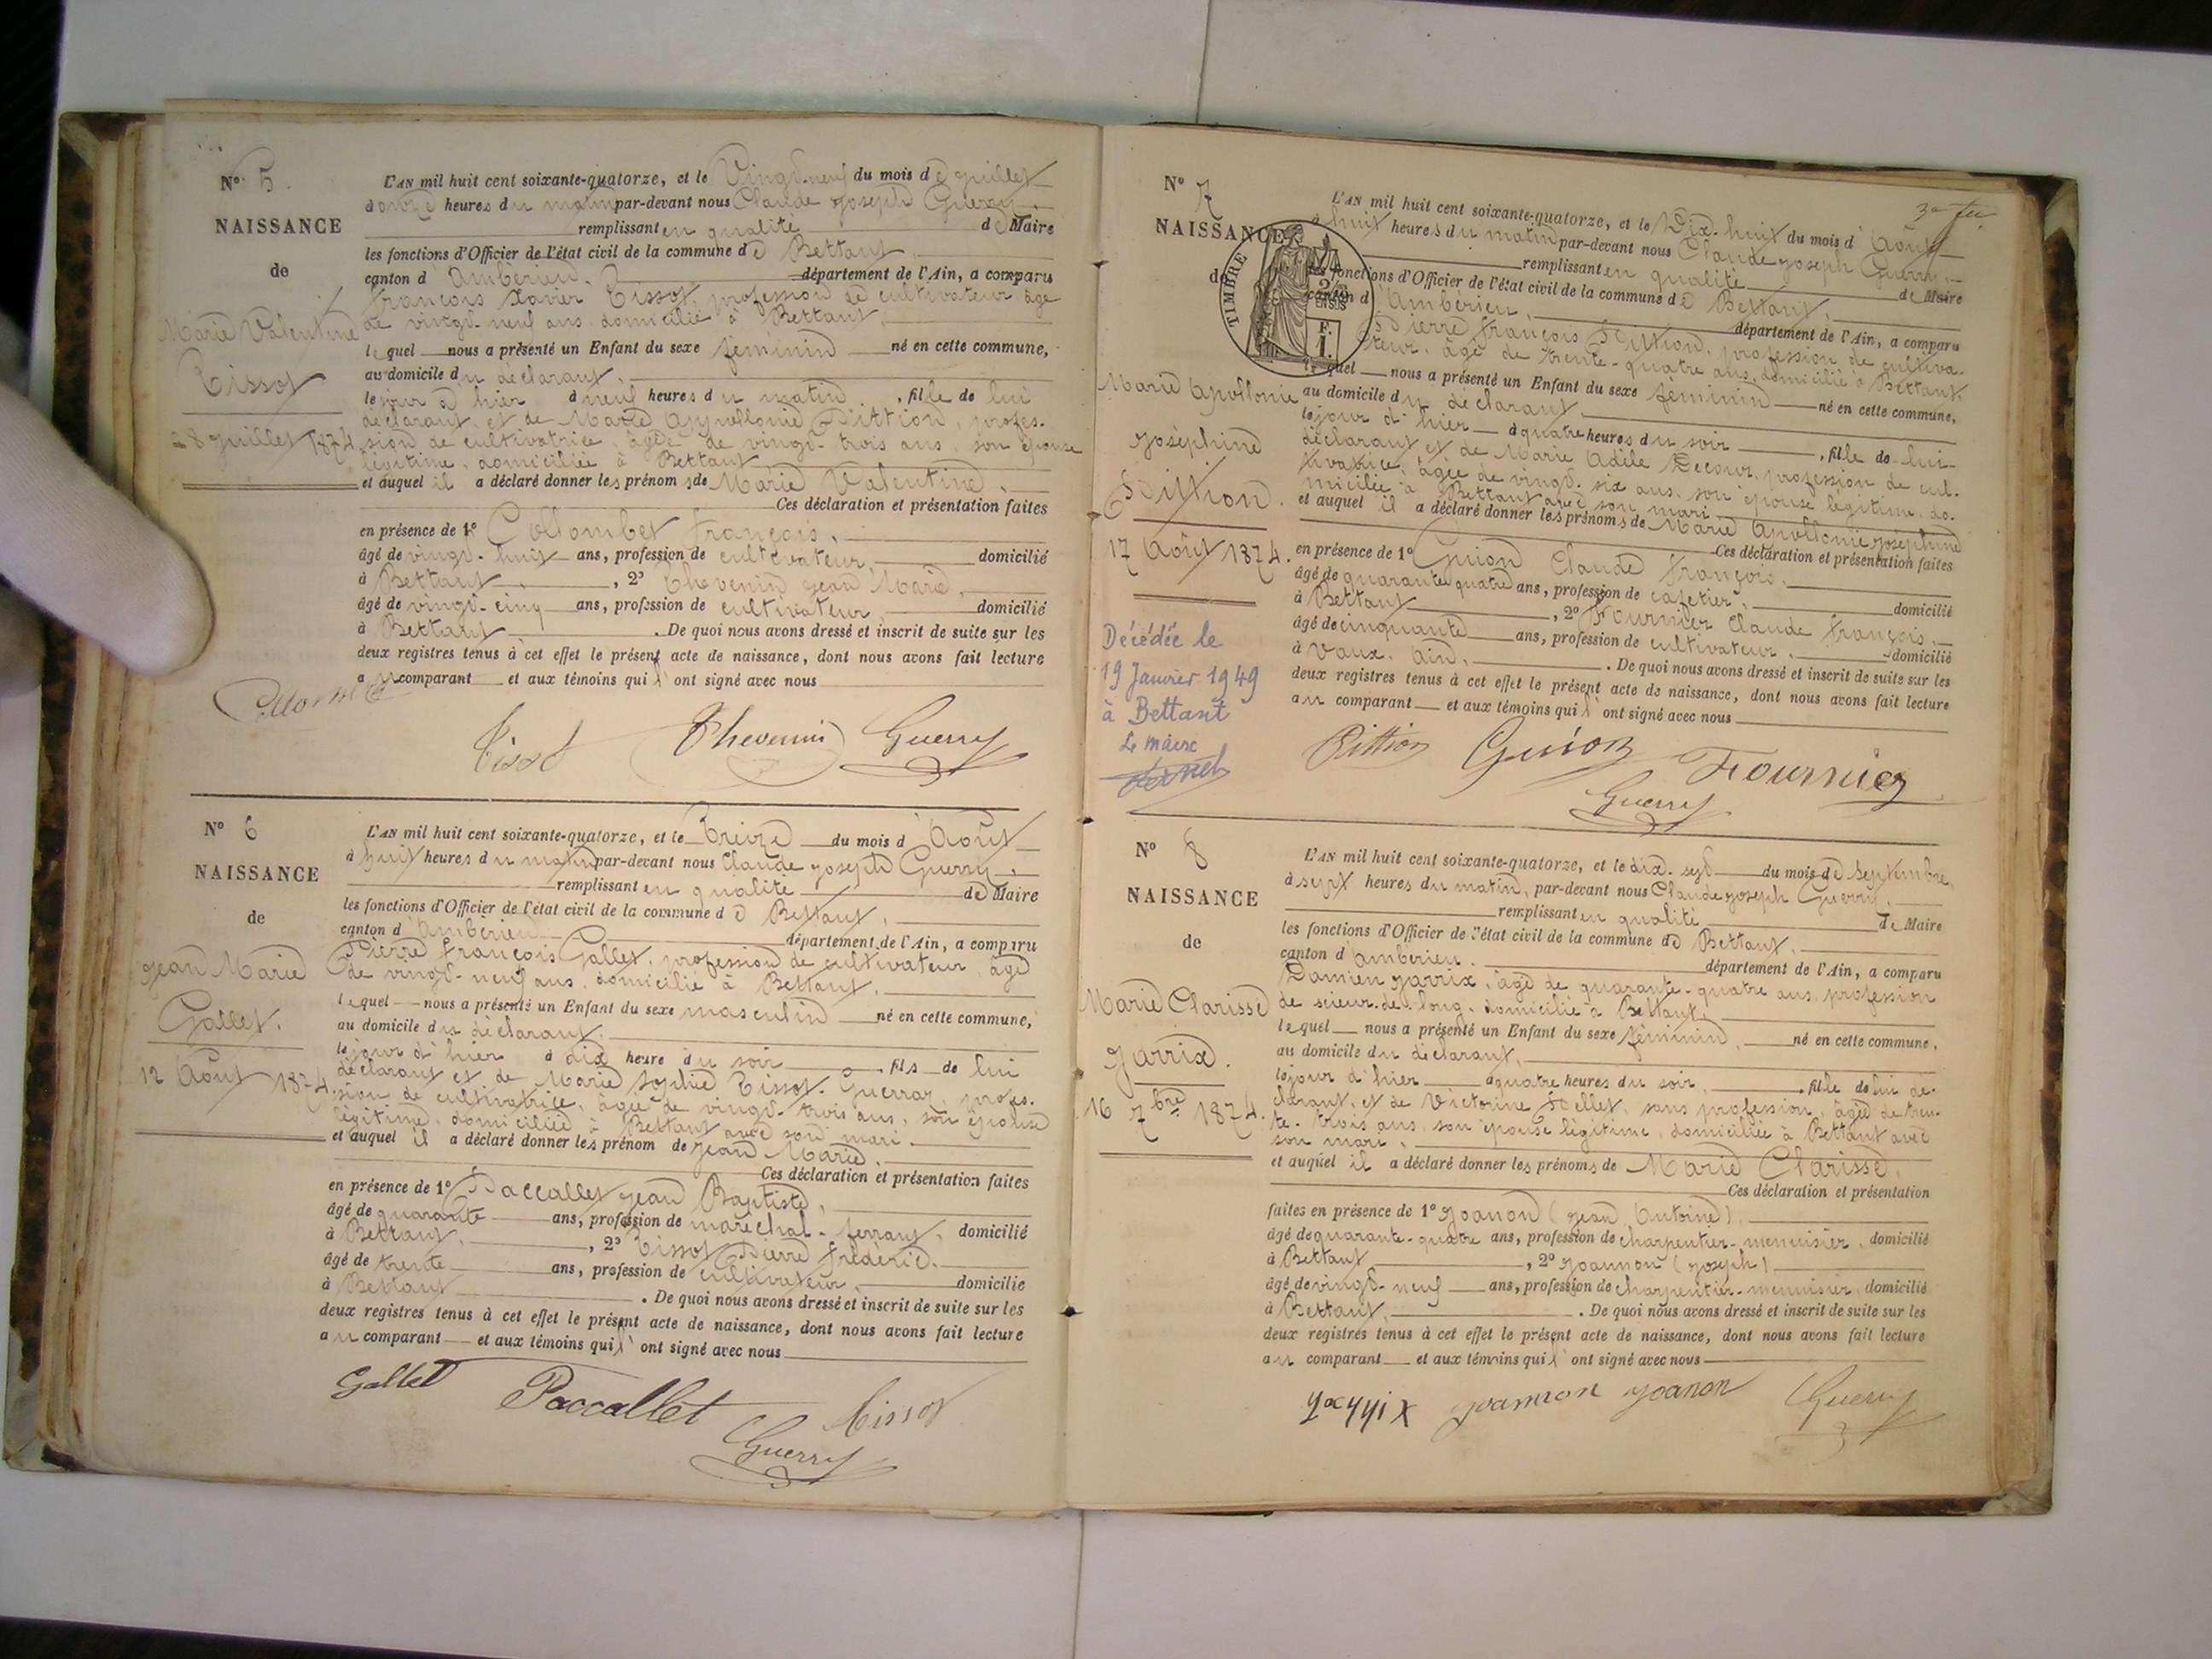 N° 5.
NAISSANCE
de
Marie Valentine
Tissot
28 Juillet 1874.
L'AN mil huit cent soixante-quatorze, et le Vingt-neuf du mois de Juillet
à onze heures du matin par-devant nous Claude Joseph Guerry,
remplissant en qualité de Maire
les fonctions d'Officier de l'état civil de la commune de Bettant
canton d'Ambérieu, département de l'Ain, a comparu
François Xavier Tissot, profession de cultivateur âgé
de vingt-neuf ans, domicilié à Bettant,
lequel nous a présenté un Enfant du sexe féminin né en cette commune,
au domicile du déclarant,
le jour d'hier à neuf heures du matin, fille de lui
déclarant et de Marie Appollonie Pittion, profes-
sion de cultivatrice, âgée de vingt-trois ans, son épouse
légitime, domiciliée à Bettant
et auquel il a déclaré donner les prénoms de Marie Valentine.
Ces déclaration et présentation faites
en présence de 1° Collombet François,
âgé de vingt-huit ans, profession de cultivateur, domicilié
à Bettant, 2° Thevenin Jean Marie,
âgé de vingt-cinq ans, profession de cultivateur, domicilié
à Bettant. De quoi nous avons dressé et inscrit de suite sur les
deux registres tenus à cet effet le présent acte de naissance, dont nous avons fait lecture
au comparant et aux témoins qui l'ont signé avec nous
Tissot Thevenin Guerry
N° 6
NAISSANCE
de
Jean Marie
Gallet.
12 Août 1874.
L'AN mil huit cent soixante-quatorze, et le Treize du mois d'Août
à huit heures du matin par-devant nous Claude Joseph Guerry,
remplissant en qualité de Maire
les fonctions d'Officier de l'état civil de la commune de Bettant,
canton d'Ambérieu département de l'Ain, a comparu
Pierre François Gallet, profession de cultivateur, âgé
de vingt-neuf ans, domicilié à Bettant,
lequel nous a présenté un Enfant du sexe masculin né en cette commune,
au domicile du déclarant,
le jour d'hier à dix heure du soir, fils de lui
déclarant et de Marie Sophie Tissot-Guerraz, profes-
sion de cultivatrice, âgée de vingt-trois ans, son épouse
légitime, domiciliée à Bettant avec son mari
et auquel il a déclaré donner les prénom de Jean Marie.
Ces déclaration et présentation faites
en présence de 1° Paccallet Jean Baptiste,
âgé de quarante ans, profession de maréchal-ferrant, domicilié
à Bettant, 2° Tissot Pierre Frédéric,
âgé de trente ans, profession de cultivateur, domicilié
à Bettant. De quoi nous avons dressé et inscrit de suite sur les
deux registres tenus à cet effet le présent acte de naissance, dont nous avons fait lecture
au comparant et aux témoins qui l'ont signé avec nous
Gallet Paccallet Tissot
Guerry
N° 7
NAISSANCE
de
Marie Apollonie
Joséphine
Pittion.
17 Août 1874.
Décédée le
19 Janvier 1949
à Bettant
Le maire
TIMBRE
L'AN mil huit cent soixante-quatorze, et le Dix-huit du mois d'Août
à huit heures du matin par-devant nous Claude Joseph Guerry,
remplissant en qualité de Maire
les fonctions d'Officier de l'état civil de la commune de Bettant,
canton d'Ambérieu, département de l'Ain, a comparu
Pierre François Pittion, profession de cultiva-
teur, âgé de trente-quatre ans, domicilié à Bettant,
lequel nous a présenté un Enfant du sexe féminin né en cette commune,
au domicile du déclarant,
le jour d'hier à quatre heures du soir, fille de lui
déclarant et de Marie Adèle Decour, profession de cul-
tivatrice, âgée de vingt-six ans, son épouse légitime, do-
miciliée à Bettant avec son mari
et auquel il a déclaré donner les prénoms de Marie Apollonie Joséphine
Ces déclaration et présentation faites
en présence de 1° Guion Claude François,
âgé de quarante quatre ans, profession de cafetier, domicilié
à Bettant, 2° Fournier Claude François,
âgé de cinquante ans, profession de cultivateur, domicilié
à Vaux, Ain. De quoi nous avons dressé et inscrit de suite sur les
deux registres tenus à cet effet le présent acte de naissance, dont nous avons fait lecture
au comparant et aux témoins qui l'ont signé avec nous
Pittion Guion Fournier
Guerry
N° 8
NAISSANCE
de
Marie Clarisse
Jarrix.
16 7bre 1874.
L'AN mil huit cent soixante-quatorze, et le dix-sept du mois de Septembre,
à sept heures du matin, par-devant nous Claude Joseph Guerry,
remplissant en qualité de Maire
les fonctions d'Officier de l'état civil de la commune de Bettant,
canton d'Ambérieu, département de l'Ain, a comparu
Damien Jarrix, âgé de quarante-quatre ans, profession
de scieur-de-long, domicilié à Bettant,
lequel nous a présenté un Enfant du sexe féminin, né en cette commune,
au domicile du déclarant,
le jour d'hier à quatre heures du soir, fille de lui dé-
clarant, et de Victorine Pellet, sans profession, âgée de tren-
te-trois ans, son épouse légitime, domiciliée à Bettant avec
son mari,
et auquel il a déclaré donner les prénoms de Marie Clarisse,
Ces déclaration et présentation
faites en présence de 1° Joanon (Jean Antoine),
âgé de quarante-quatre ans, profession de charpentier-menuisier, domicilié
à Bettant, 2° Joannon (Joseph)
âgé de vingt-neuf ans, profession de charpentier-menuisier, domicilié
à Bettant. De quoi nous avons dressé et inscrit de suite sur les
deux registres tenus à cet effet le présent acte de naissance, dont nous avons fait lecture
au comparant et aux témoins qui l'ont signé avec nous
Jarrix Joannon Joanon Guerry